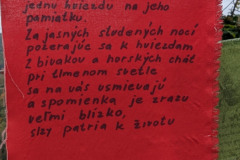 jednu hviezdu na jeho
pamiatku.
Za jasných studených nocí
pozerajúc sa k hviezdam
z bivakov a horských chát
pri tlmenom svetle
sa na vás usmievajú
a spomienka je zrazu
veľmi blízko,
slzy patria k životu